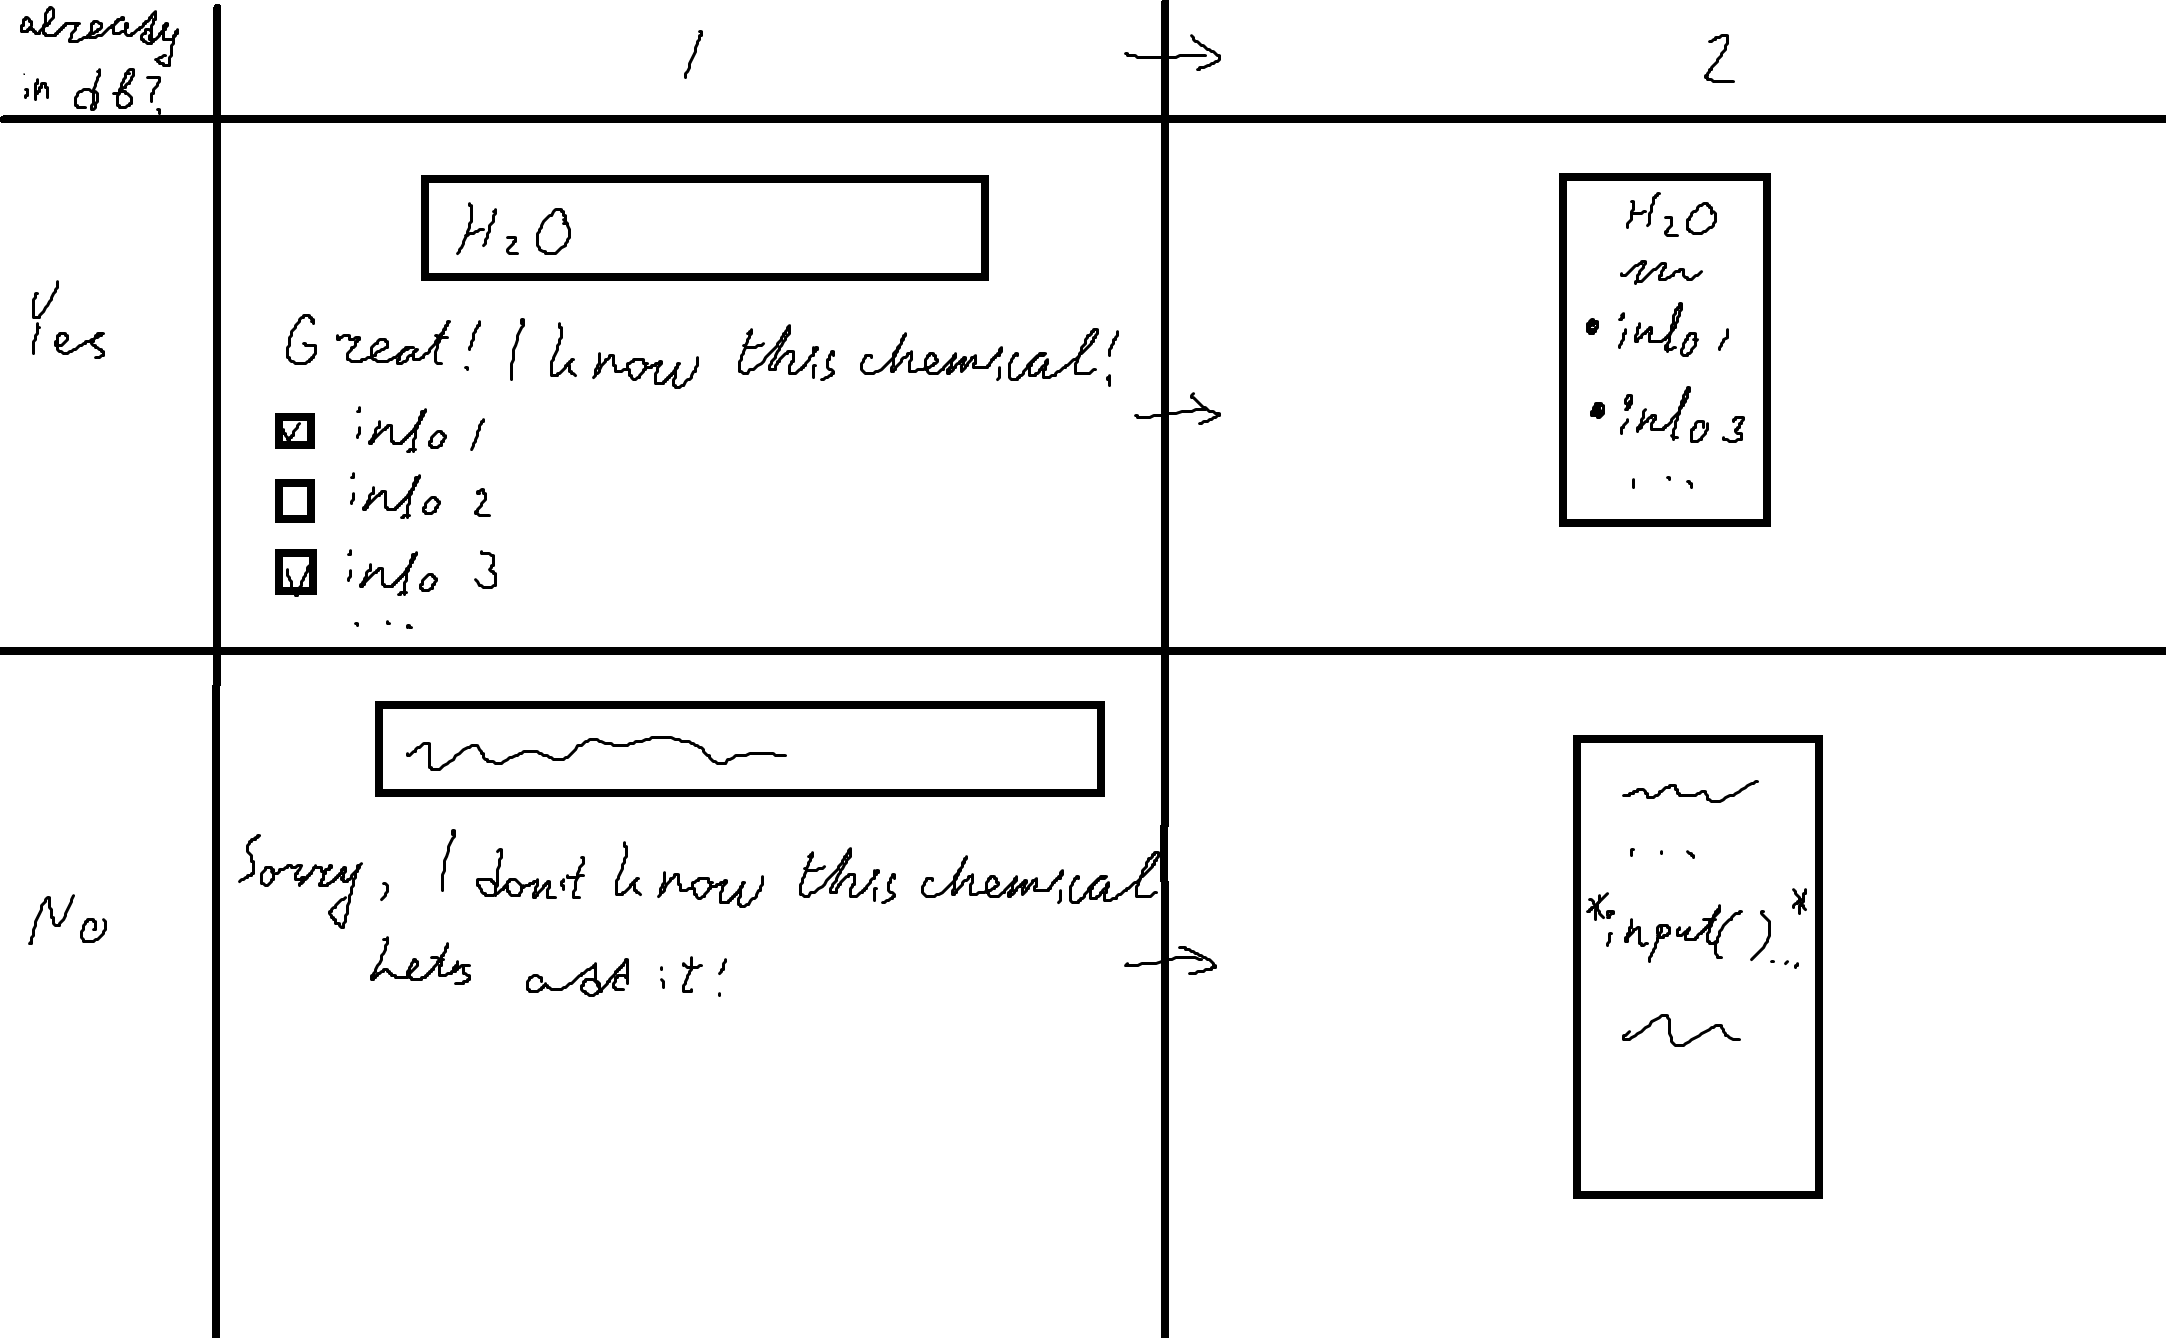 already
in db?
1
→
2
Yes
H₂O
Great! I know this chemical!
info 1
info 2
info 3
...
→
H₂O
• info 1
• info 3
...
No
Sorry, I don't know this chemical
Let's add it!
→
...
*input()...*